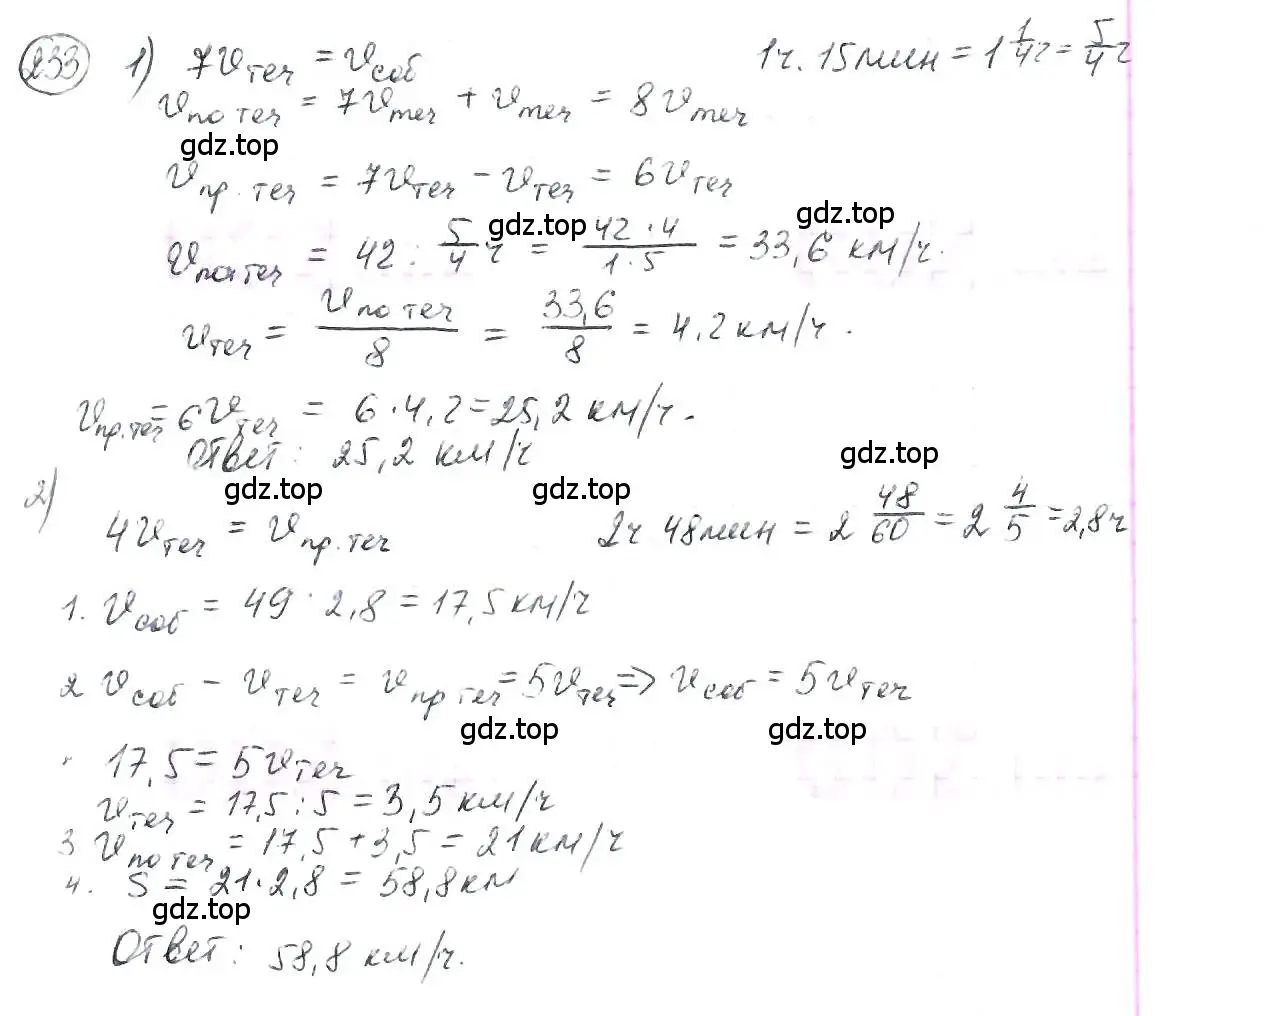 233 1) 7v теч = v соб 1ч. 15мин = 1 1/4 ч = 5/4 ч
v по теч = 7v теч + v теч = 8v теч
gdz.top
v пр. теч = 7v теч - v теч = 6v теч
gdz.top gdz.top
v по теч = 42 : 5/4 ч = 42 · 4 / 1 · 5 = 33,6 км/ч.
v теч = v по теч / 8 = 33,6 / 8 = 4.2 км/ч.
v пр. теч = 6v теч = 6 · 4,2 = 25,2 км/ч.
Ответ: 25,2 км/ч
gdz.top
2)
gdz.top gdz.top
4v теч = v пр. теч 2ч 48мин = 2 48/60 = 2 4/5 = 2,8ч
1. v соб = 49 · 2,8 = 17,5 км/ч
2 v соб - v теч = v пр теч = 5v теч => v соб = 5v теч
gdz.top gdz.top
17,5 = 5v теч
v теч = 17,5 : 5 = 3,5 км/ч
3 v по теч = 17,5 + 3,5 = 21 км/ч
4. S = 21 · 2,8 = 58,8 км
gdz.top
Ответ: 58,8 км/ч.